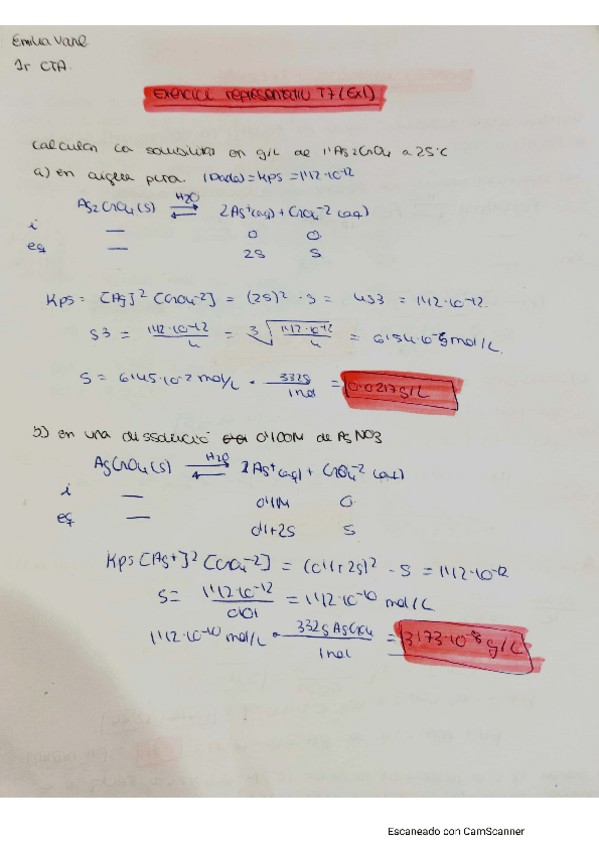 Emilia Vane
1r CTA
EXERCICI REPRESENTATIU T7 (Ex1)
Calcular la solubilitat en g/L de l'Ag2CrO4 a 25ºC
a) en aigua pura. (Dada) = Kps = 1'12·10-12
Ag2CrO4 (s) H2O ⇌ 2Ag+(aq) + CrO4-2 (aq)
i — 0 0
eq — 2S S
Kps = [Ag]2 [CrO4-2] = (2S)2 · S = 4S3 = 1'12·10-12.
S3 = 1'12·10-12 / 4 = 3√ 1'12·10-12 / 4 = 6'54·10-5 mol/L.
S = 6'45·10-2 mol/L · 332g / 1mol = 0.0217g/L
b) en una dissolució 0'100M de AgNO3
AgCrO4 (s) H2O ⇌ 2Ag+(aq) + CrO4-2 (aq)
i — 0'1M 0
eq — 0'1+2S S
Kps [Ag+]2 [CrO4-2] = (0'1+2S)2 · S = 1'12·10-12
S = 1'12·10-12 / 0'01 = 1'12·10-10 mol/L
1'12·10-10 mol/L · 332g AgCrO4 / 1mol = 3'73·10-8 g/L
Escaneado con CamScanner